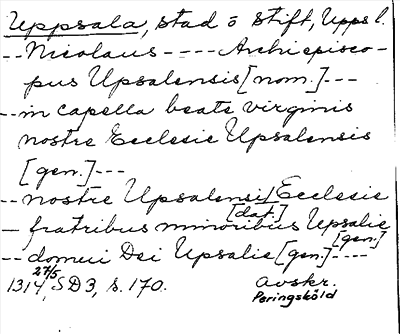 Uppsala, stad o stift, Upps l.
-- Nicolaus ---- Archiepisco-
pus Upsalensis [nom.] ---
-- in capella beate virginis
nostre Ecclesie Upsalensis
[gen.] ---
-- nostre Upsalensi Ecclesie
[dat.]
- fratribus minoribus Upsalie
[gen.]
-- domui Dei Upsalie [gen.] ----
27/5
1314, SD3, s. 170. avskr.
Peringsköld